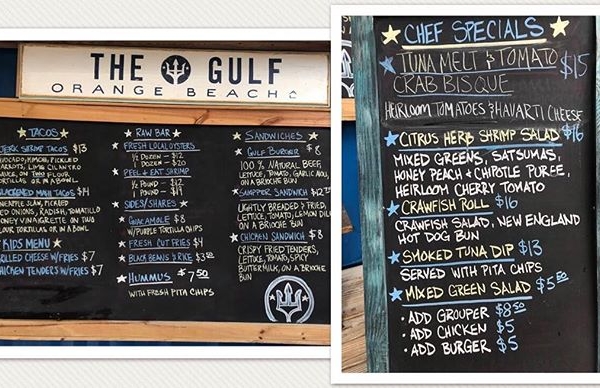 THE GULF
ORANGE BEACH
TACOS
JERK SHRIMP TACOS $13
PICKLED
CARROTS, LIME CILANTRO
SAUCE, ON TWO FLOUR
TORTILLAS OR IN A BOWL
BLACKENED MAHI TACOS $14
PINEAPPLE SLAW, PICKLED
RED ONIONS, RADISH, TOMATILLO
HONEY VINAIGRETTE ON TWO
FLOUR TORTILLAS OR IN A BOWL
KIDS MENU
GRILLED CHEESE W/FRIES $7
CHICKEN TENDERS W/FRIES $7
RAW BAR
FRESH LOCAL OYSTERS
1/2 DOZEN - $12
1 DOZEN - $20
PEEL + EAT SHRIMP
1/2 POUND - $12
1 POUND -
SIDES/SHARES
GUACAMOLE $8
W/PURPLE TORTILLA CHIPS
FRESH CUT FRIES $4
BLACK BEANS & RICE $3.00
HUMMUS $7.50
WITH FRESH PITA CHIPS
SANDWICHES
GULF BURGER $8
100% NATURAL BEEF,
LETTUCE, TOMATO, GARLIC AIOLI,
ON A BRIOCHE BUN
SANDWICH
LIGHTLY BREADED & FRIED,
LETTUCE, TOMATO, LEMON DILL
ON A BRIOCHE BUN
CHICKEN SANDWICH $8
CRISPY FRIED TENDERS,
LETTUCE, TOMATO, SPICY
BUTTERMILK, ON A BRIOCHE
BUN
CHEF SPECIALS
TUNA MELT & TOMATO $15
CRAB BISQUE
HEIRLOOM TOMATOES & HAVARTI CHEESE
CITRUS HERB SHRIMP SALAD $16
MIXED GREENS, SATSUMAS,
HONEY PEACH & CHIPOTLE PUREE,
HEIRLOOM CHERRY TOMATO
CRAWFISH ROLL $16
CRAWFISH SALAD, NEW ENGLAND
HOT DOG BUN
SMOKED TUNA DIP $13
SERVED WITH PITA CHIPS
MIXED GREEN SALAD $5.50
• ADD GROUPER $8.50
• ADD CHICKEN $5
• ADD BURGER $5